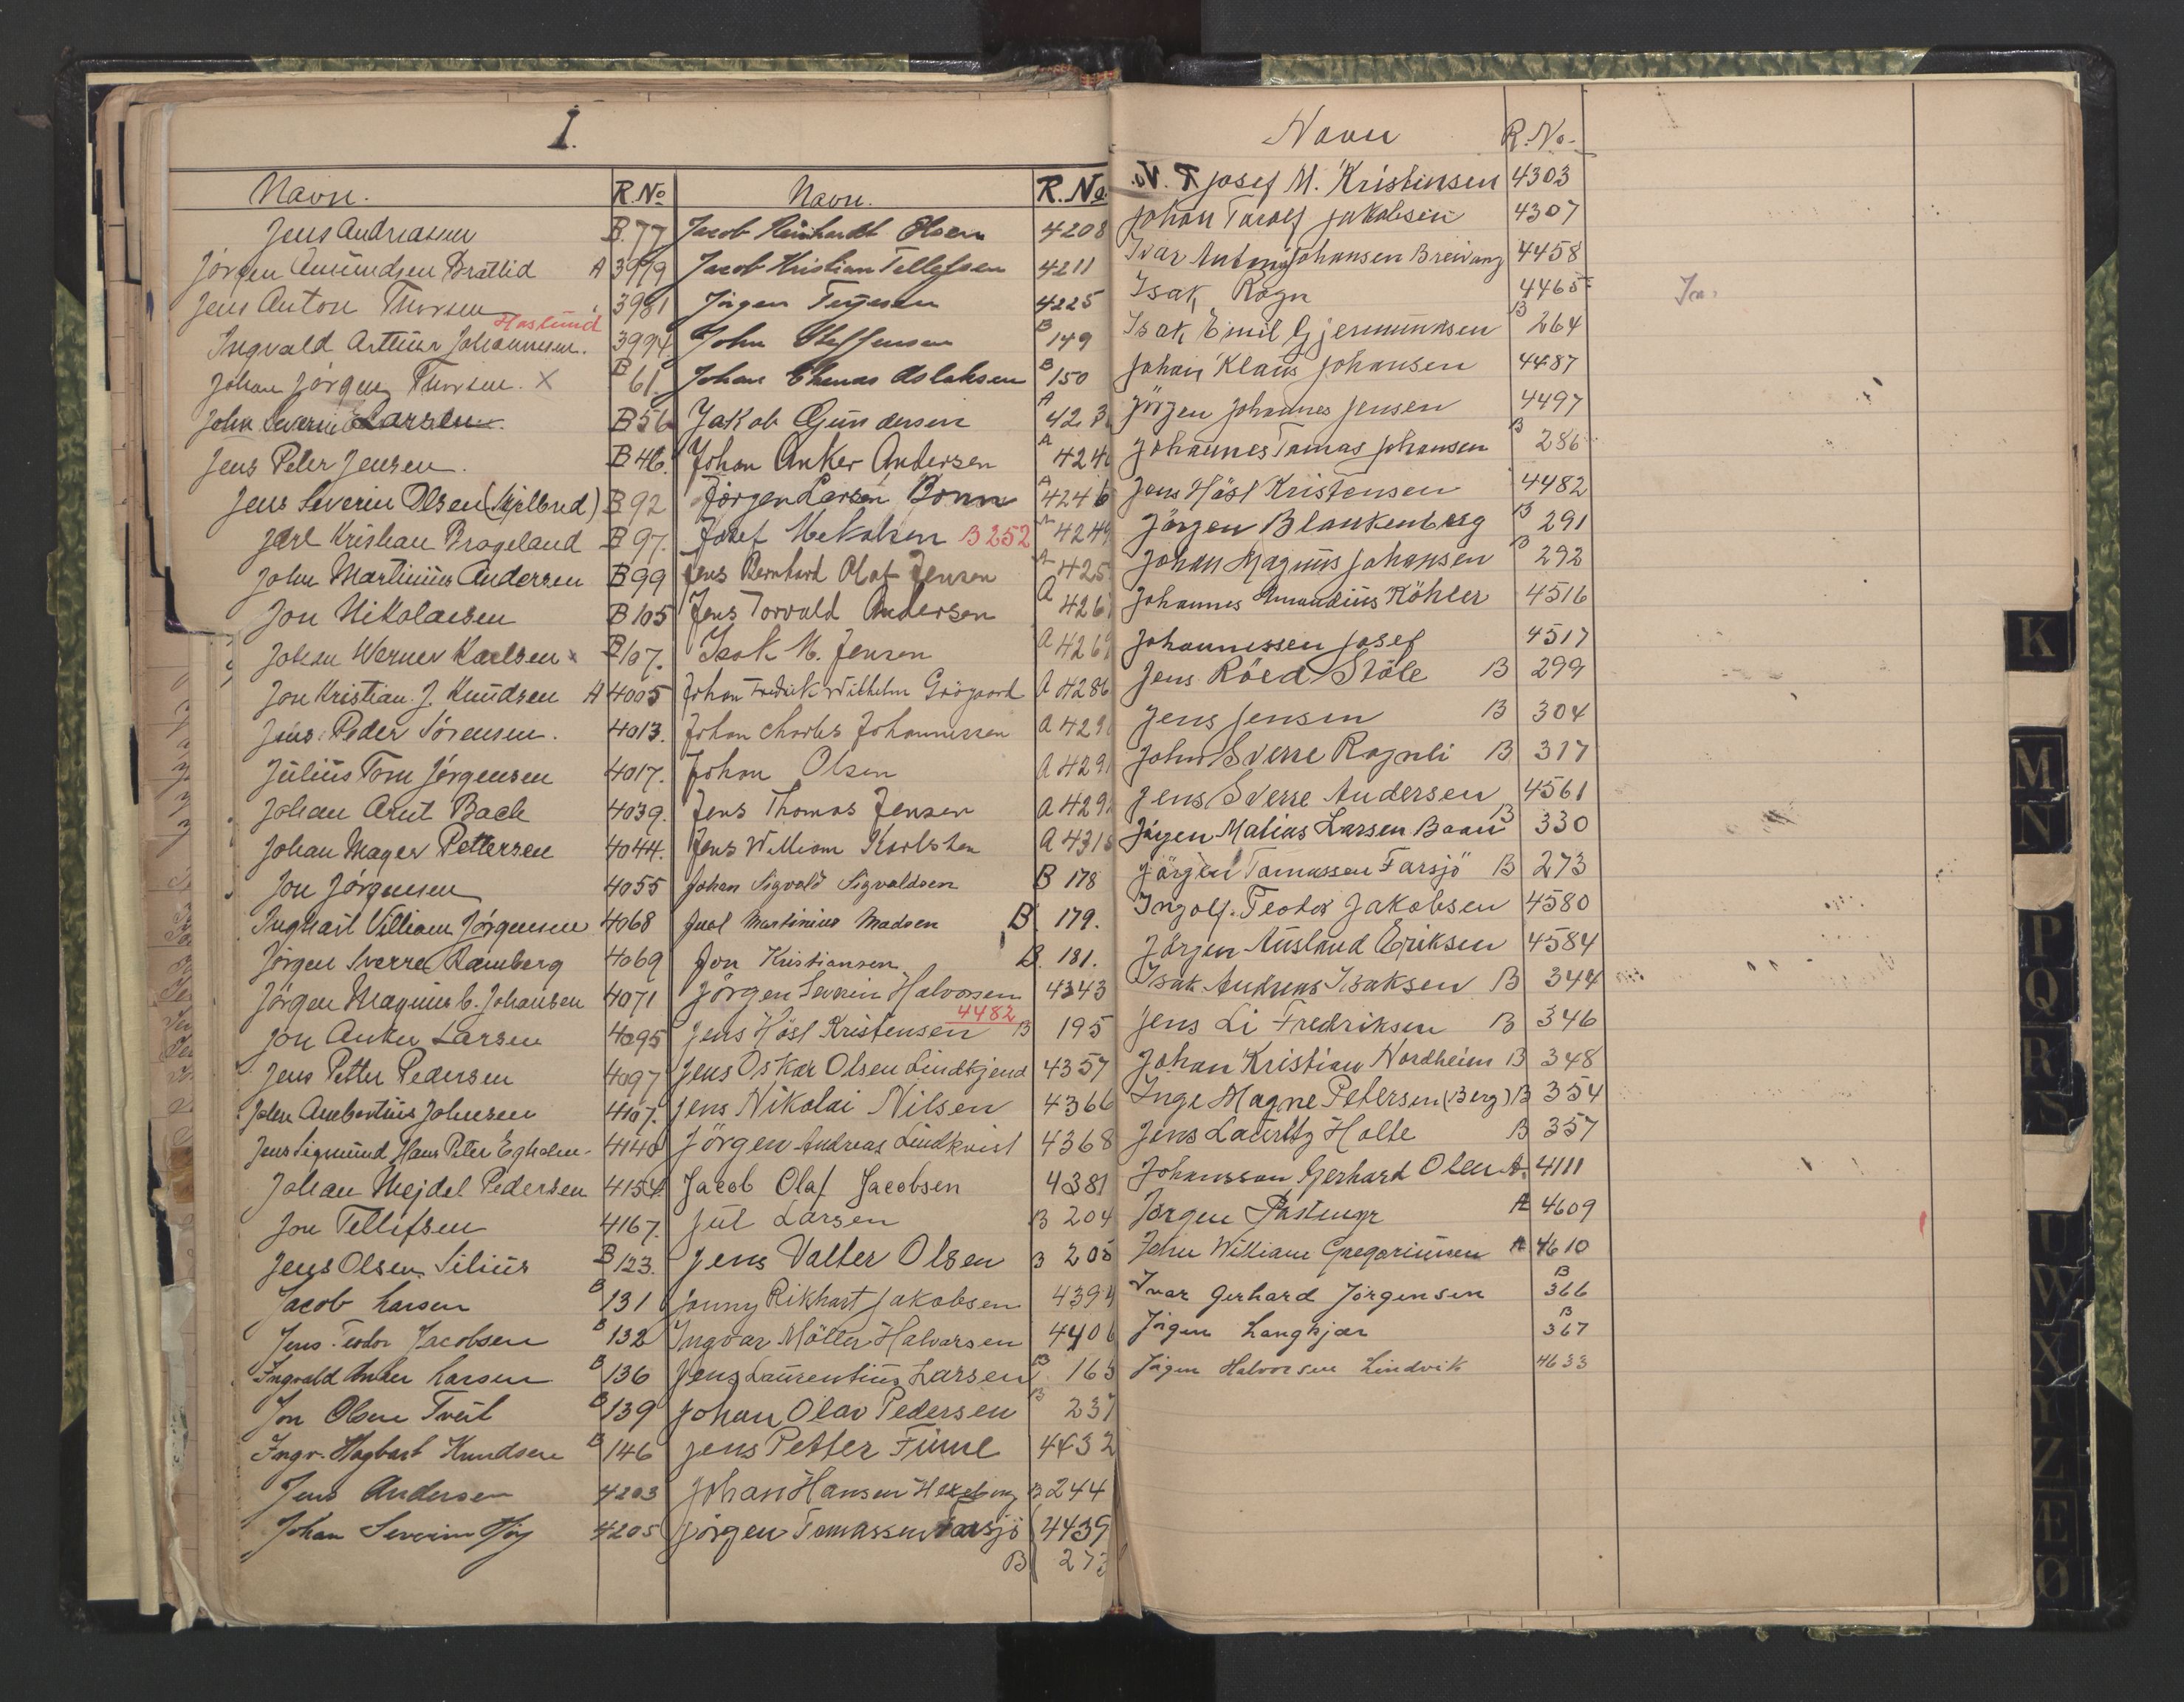 I.
Navn. R.No
Jens Andreasen B.77
Jörgen Amundsen Brattlid A 3979
Jens Anton Thorsen 3981
Haslund
Ingvald Artüur Johannesen. 3994
Johan Jörgen Thorsen. X B 61.
John Severin Larsen B 56
Jens Peter Jensen. B 46.
Jens Severin Olsen B 92
Jarl Kristian Brageland B 97.
John Martinius Andersen B 99
Jon Nikolaisen B 105
Johan Werner Karlsen x B 107.
Jon Kristian J. Knudsen A 4005
Jens Peder Sörensen. 4013.
Julius Tom Jörgensen 4017.
Johan Arnt Bach 4039.
Johan Mager Pettersen 4044.
Jon Jörgensen 4055
Inghart Villiam Jörgensen 4068
Jörgen Sverre Ramberg 4069
Jörgen Magnus C. Johansen 4071
Jon Anker Larsen 4095
Jens Petter Pedersen 4097
John Ambortius Johnsen 4107.
Jens Sigmund Hans Peter Egholm 4140
Johan Mejdel Pedersen 4154
Jon Tellefsen 4167.
Jens Olsen Silius B 123.
Jacob Larsen B 131
Jens Teodor Jacobsen B 132
Ingvald Anker Larsen B 136
Jon Olsen Tveit B 139
Ingv. Hagbart Knudsen B 146
Jens Andersen 4203
Johan Severin 4205
Navn. R.No
Jacob Reinhardt Olsen 4208
Jacob Kristian Tellefsen 4211
Jörgen Terjesen 4225
John Steffensen B 149
Johan Thomas Aslaksen B 150
Jakob Gundersen A 423
Johan Anker Andersen A 424
Jörgen Larsen Bonn A 4246
Josef Mekalsen B 252 A 4249
Jens Bernhard Olaf Jensen A 425
Jens Torvald Andersen A 426
Isak M. Jensen A 426
Johan Fredrik Wilhelm Grögaard A 4286
Johan Charles Johannessen A 429
Johan Olsen A 429
Jens Thomas Jensen A 429
Jens William Karlsten A 431
Johan Sigvald Sigvaldsen B 178
Juel Martinius Madsen B 179.
Jon Kristiansen B. 181.
Jörgen Severin Halvorsen 4343
4482
Jens Höst Kristensen B 195
Jens Oskar Olsen Lindkjend 4357
Jens Nikolai Nilsen 4366
Jörgen Andreas Lindkvist 4368
Jacob Olaf Jacobsen 4381
Jul Larsen B 204
Jens Valter Olsen B 205
Jonny Rikhart Jakobsen 4394
Ingvar Möller Halvarsen 4406
Jens Laurentius Larsen B 165
Johan Olav Pedersen B 237
Jens Petter Fume 4432
Johan Hansen B 244
Jörgen Tomassen Farsjö 4439
B 273
Navn R.No.
Josef M. Kristinsen 4303
Johan Toralf Jakobsen 4307
Ivar Anton Johansen Breivang 4458
Isak Rogn 4465
Isak Emil Gjermundsen B 264
Johan Klaus Johansen 4487
Jörgen Johannes Jensen 4497
Johannes Tomas Johansen B 286
Jens Höst Kristensen 4482
Jörgen Blankenberg B 291
Johan Magnus Johansen B 292
Johannes Amandius Köhler 4516
Johannessen Josef 4517
Jens Röed Stöle B 299
Jens Jensen B 304
John Sverre Rognli B 317
Jens Sverre Andersen 4561
Jörgen Matias Larsen Baan B 330
Jörgen Tomassen Farsjö B 273
Ingolf Teodor Jakobsen 4580
Jörgen Ausland Eriksen 4584
Isak Andreas Isaksen B 344
Jens Li Fredriksen B 346
Johan Kristian Nordheim B 348
Inge Magne Petersen (Berg) B 354
Jens Lauritz Holte B 357
Johansson Gerhard Olen A. 4111
Jörgen A 4609
John William Gregoriussen A 4610
Ivar Gerhard Jörgensen B 366
Jörgen Langkjær B 367
Jörgen Halvorsen Lindvik 4633
K
M
N
P
Q
R
S
U
W
X
Y
Z
Æ
Ø